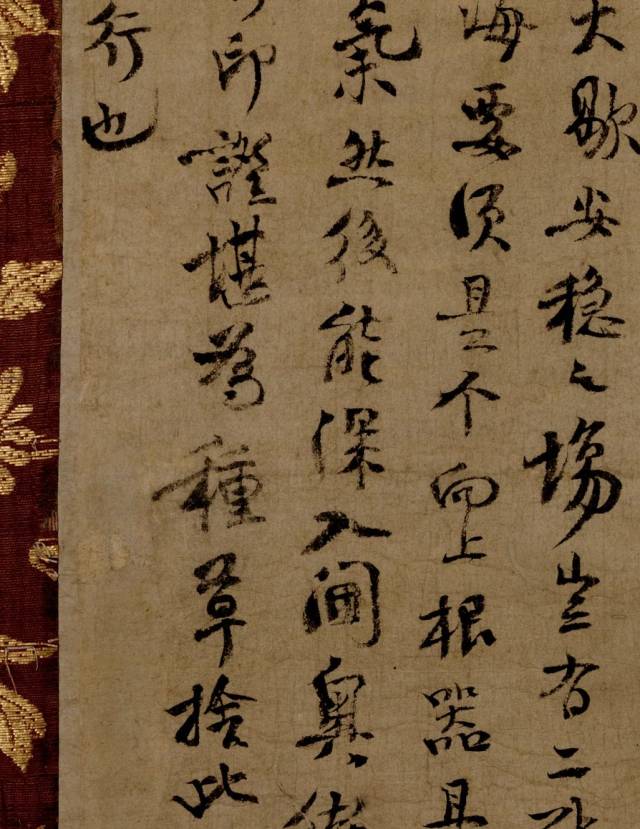 大歇安穩之場豈有二
要須是个向上根器具
氣然後能深入閫奧
印證堪為種草捨此
行也